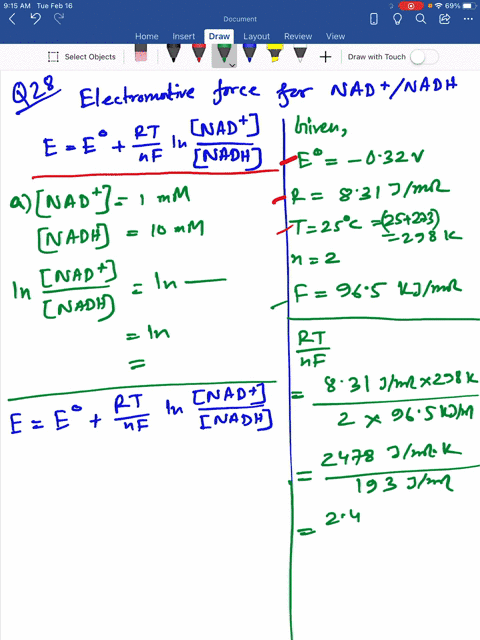 9:15 AM Tue Feb 16
69%
Document
Home Insert Draw Layout Review View
Select Objects
Draw with Touch
Q28 Electromotive force for NAD+/NADH
E = E° + RT/nF ln [NAD+]/[NADH]
a) [NAD+] = 1 mM
[NADH] = 10 mM
ln [NAD+]/[NADH] = ln —
= ln
=
E = E° + RT/nF ln [NAD+]/[NADH]
Given,
E° = -0.32 V
R = 8.31 J/mol
T = 25°C = (25+273)
= 298 K
n = 2
F = 96.5 KJ/mol
RT/nF
= 8.31 J/mol × 298 K / 2 × 96.5 KJ/M
= 2478 J/mol.K / 193 J/mol
= 2.4